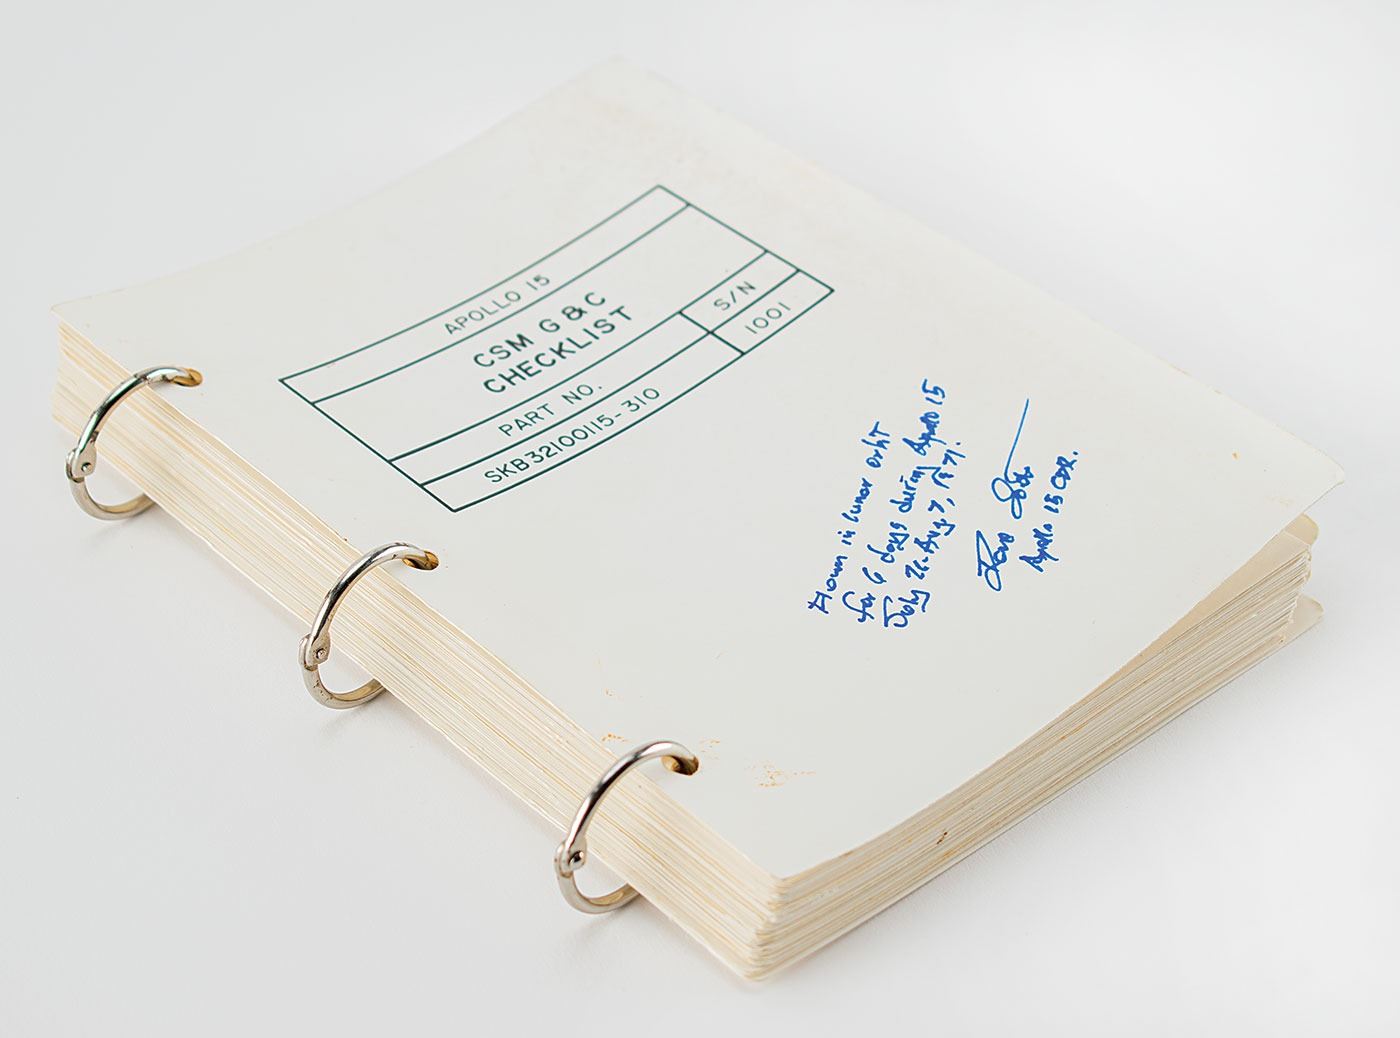 APOLLO 15
CSM G & C
CHECKLIST
PART NO. S/N
SKB32100115-310 1001
Flown in lunar orbit
for 6 days during Apollo 15
July 26-Aug 7, 1971!
Dave Scott
Apollo 15 CDR.